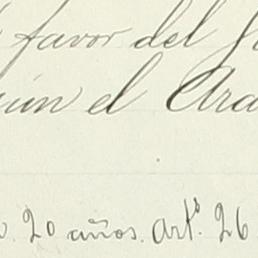 favor del
ún el Ara
20 años. Artº. 26